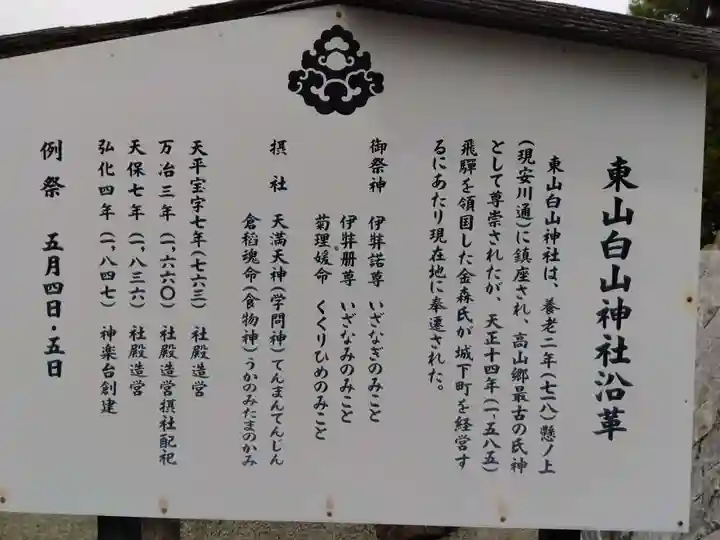 東山白山神社沿革
東山白山神社は、養老二年(七一八)懸ノ上
(現安川通)に鎮座され、高山郷最古の氏神
として尊崇されたが、天正十四年(一、五八五)
飛騨を領国した金森氏が城下町を経営す
るにあたり現在地に奉遷された。
御祭神　伊弉諾尊　いざなぎのみこと
伊弉册尊　いざなみのみこと
菊理媛命　くくりひめのみこと
摂社　天満天神(学問神)てんまんてんじん
倉稲魂命(食物神)うかのみたまのかみ
天平宝字七年(七六三)　社殿造営
万治三年(一、六六〇)　社殿造営摂社配祀
天保七年(一、八三六)　社殿造営
弘化四年(一、八四七)　神楽台創建
例祭　五月四日・五日